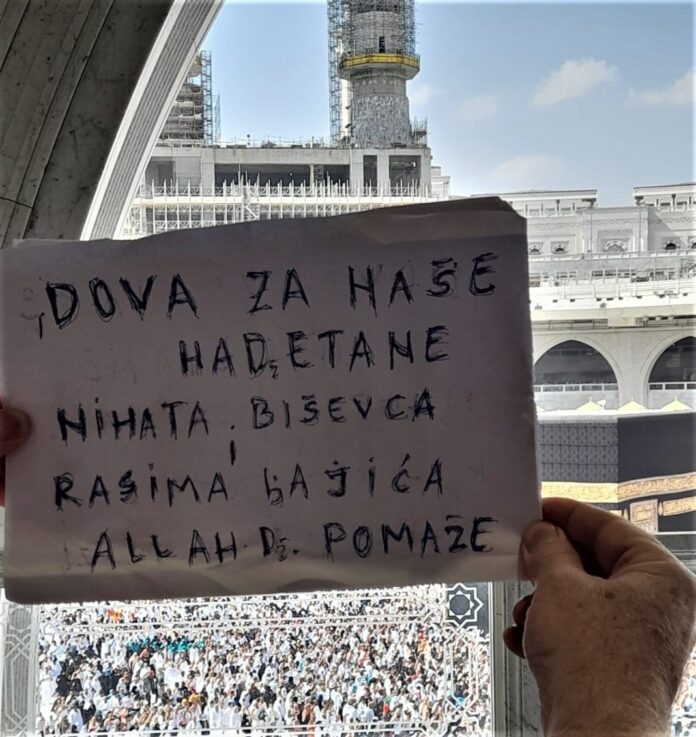 DOVA ZA NAŠE
HADžETANE
NIHATA i BIŠEVCA
RASIMA đAJIĆA
ALLAH Dž. POMAŽE